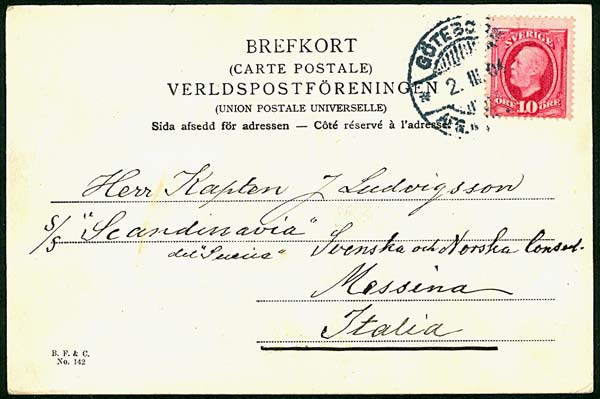 BREFKORT
(CARTE POSTALE)
VERLDSPOSTFÖRENINGEN
(UNION POSTALE UNIVERSELLE)
Sida afsedd för adressen — Côté réservé à l'adresse
GÖTEBORG
2. III. 04
SVERIGE
ÖRE 10 ÖRE
Herr Kapten J Ludvigsson
S/S "Scandinavia"
Svenska och Norska Consul.
Messina
Italia
B. F. & C.
No. 142